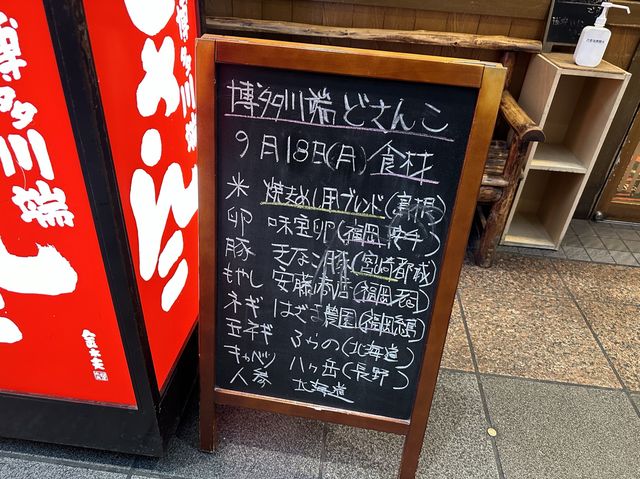 博多川端どさんこ
9月18日(月)食材
米 焼めし用ブレンド(島根)
卵 味宝卵(福岡
豚 きなこ豚(宮崎都城)
もやし 安藤商店(福岡
ネギ はざま農園(福岡
玉ネギ ふらの(北海道)
キャベツ 八ヶ岳(長野)
人参 北海道
博多川端
どさんこ
博多川端